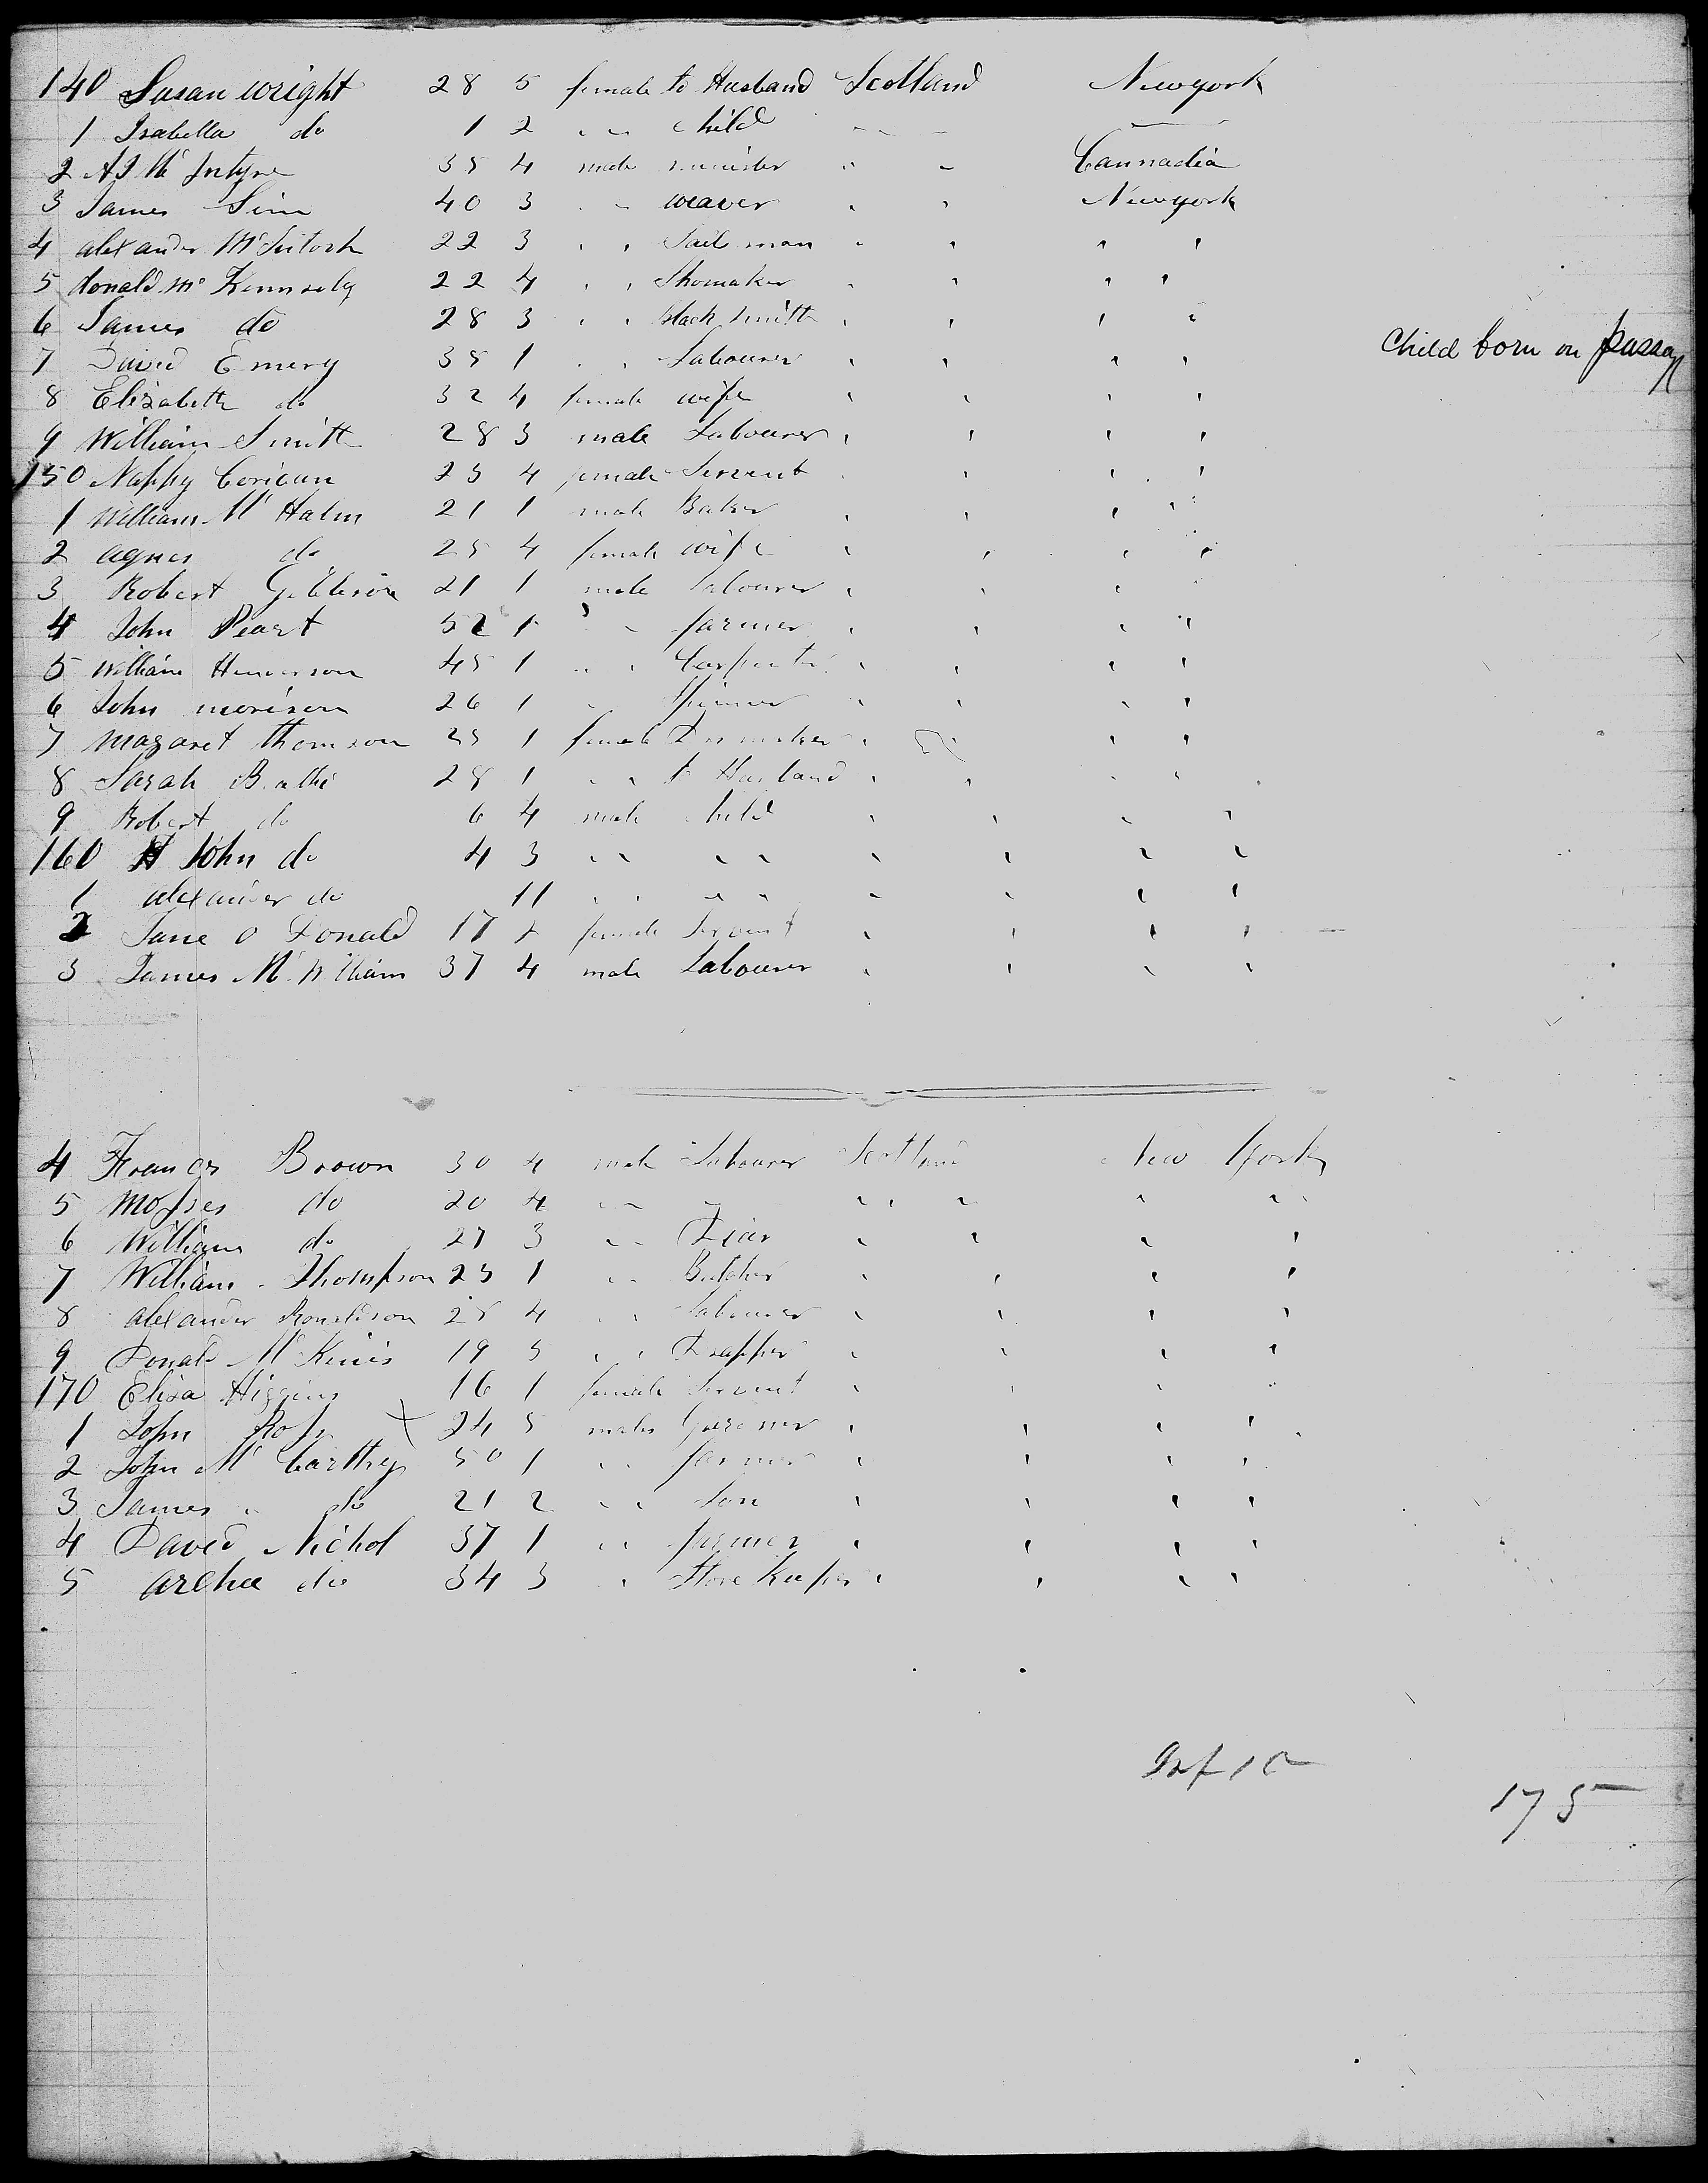 140 Susan wright 28 5 female to Husband Scotland Newyork
1 Isabella do 1 2 " " child
2 A J Mc Intyre 35 4 male minister " " Cannadia
3 James Sim 40 3 " " weaver " " Newyork
4 alexander McIntosh 22 3 " " " " " "
5 donald mc 22 4 " " Shomaker " " " "
6 James do 28 3 " " black smith " " " "
7 David Emery 38 1 " " Labourer " " " " Child born on passag
8 Elizabeth do 32 4 female wife " " " "
9 William Smith 28 3 male Labourer " " " "
150 4 female Servent " " " "
1 William Mc Halm 21 1 male Baker " " " "
2 agnes do 25 4 female wife " " " "
3 Robert 21 1 male labourer " " "
4 John Peart 52 1 " " farmer " " " "
5 William Henderson 45 1 " " Carpenter " " " "
6 John morison 26 1 " " " " "
7 Magaret Thomson 1 female " " "
8 Sarah 28 1 " " to Husband " " " "
9 Robert do 6 4 male child " " " "
160 John do 4 3 " " " " " " " "
1 alexander do 11 " " " " " " " "
2 Jane O Donald 17 female Servent " " " "
3 James Mc William 37 4 male Labourer " " " "
4 Francis Brown 30 4 male Labourer Scotland New York
5 Mosses do 20 4 " " " " " " "
6 William do 27 3 " " " " " "
7 William Thompson 23 1 " " Butcher " " " "
8 alexander Ronaldson 28 4 " " Labourer " " " "
9 Donald Mc 19 5 " " Drapper " " " "
170 Eliza Higgins 16 1 female Servent " " " "
1 John Ross 24 5 male Gardner " " " "
2 John Mc Carthy 50 1 " " farmer " " " "
3 James " do 21 2 " " Son " " " "
4 David Nichol 37 1 " " farmer " " " "
5 do 34 3 " Store Keeper " " " "
175